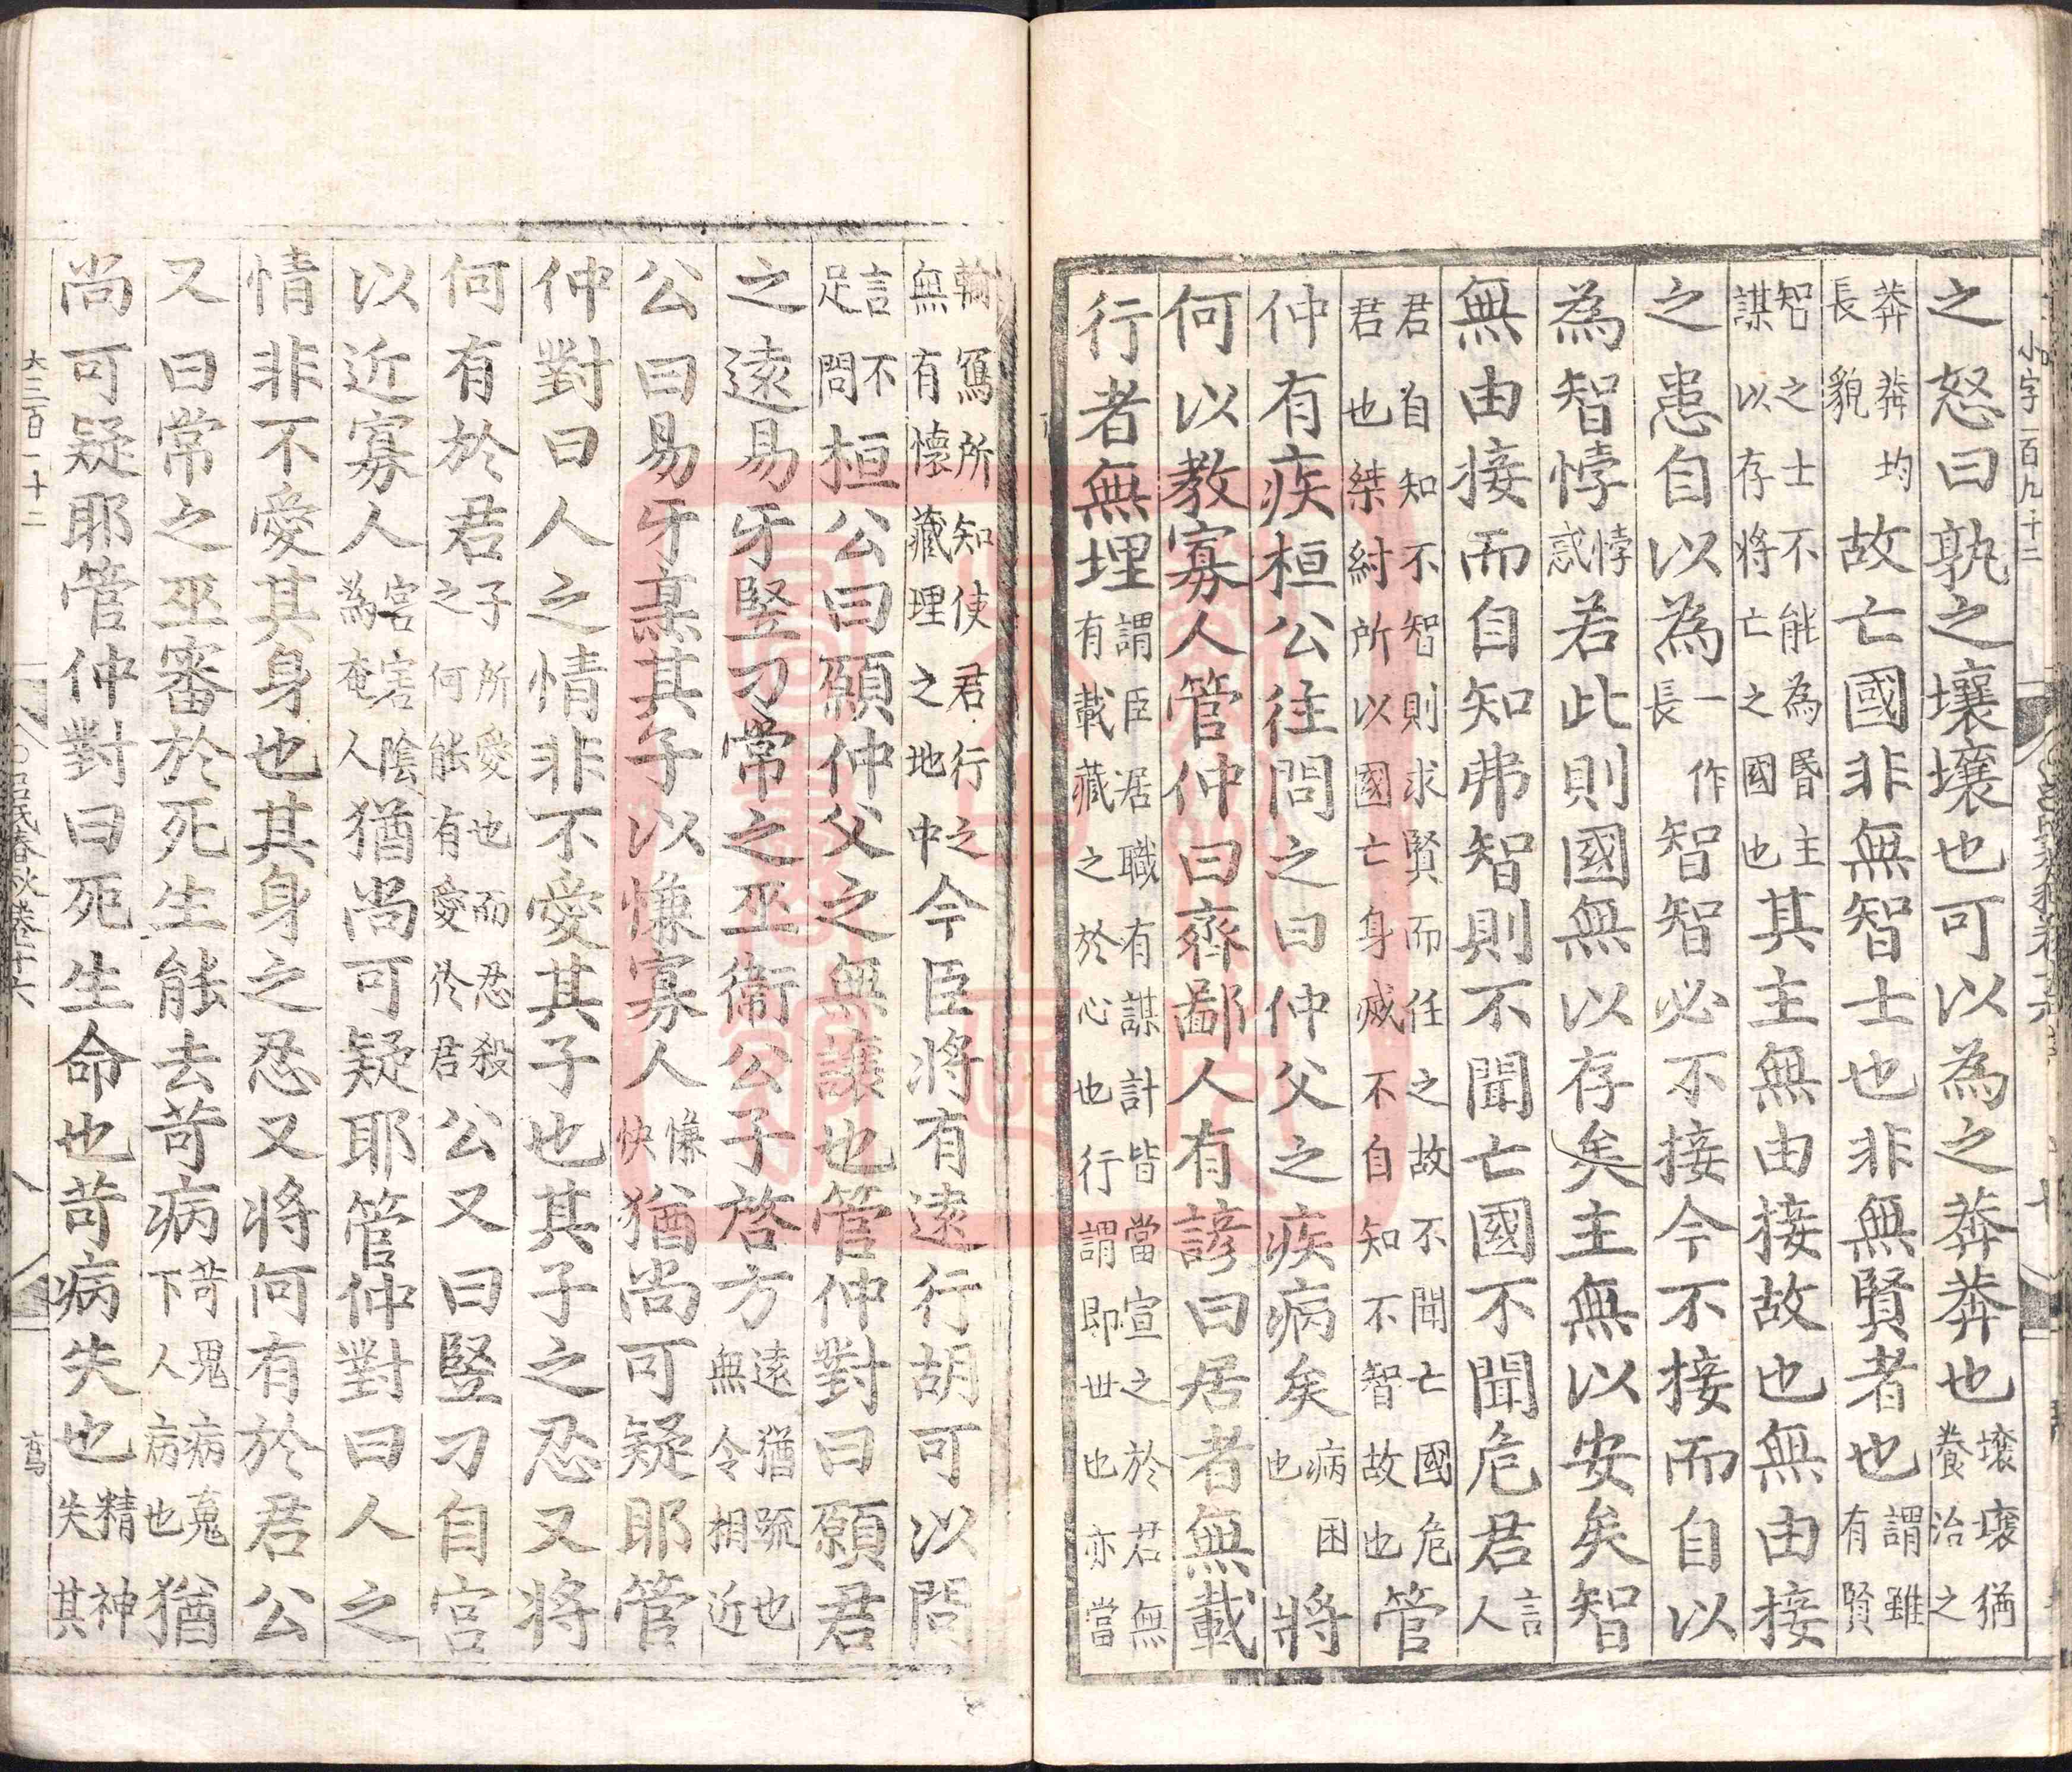 小字一百九十二
之怒曰孰之壤壤也可以為之莽莽也壤壤猶養治之
莽莽均長貌故亡國非無智士也非無賢者也謂雖有賢
智之士不能為昬主謀以存將亡之國也其主無由接故也無由接
之患自以為一作長智智必不接今不接而自以
為智悖悖惑若此則國無以存矣主無以安矣智
無由接而自知弗智則不聞亡國不聞危君言人
君自知不智則求賢而任之故不聞亡國危君也桀紂所以國亡身滅不自知不智故也管
仲有疾桓公往問之曰仲父之疾病矣病困也將
何以教寡人管仲曰齊鄙人有諺曰居者無載
行者無埋謂臣居職有謀計皆當宣之於君無有載藏之於心也行謂即世也亦當
輸寫所知使君行之無有懷藏理之地中今臣將有遠行胡可以問
言不足問桓公曰願仲父之無讓也管仲對曰願君
之遠易牙豎刁常之巫衞公子啓方遠猶疏也無令相近
公曰易牙烹其子以慊寡人慊快猶尚可疑耶管
仲對曰人之情非不愛其子也其子之忍又將
何有於君子所愛也而忍殺之何能有愛於君公又曰豎刁自宮
以近寡人宮害陰為奄人猶尚可疑耶管仲對曰人之
情非不愛其身也其身之忍又將何有於君公
又曰常之巫審於死生能去苛病苛鬼病䰟下人病也猶
尚可疑耶管仲對曰死生命也苛病失也精神失其
大三百一十二
呂氏春秋卷十六
八